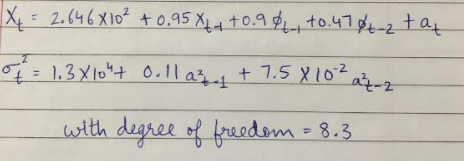 X_t = 2.646 X10² + 0.95 X_t-1 + 0.9 ϕ_t-1 + 0.47 ϕ_t-2 + a_t
σ_t² = 1.3X10⁴ + 0.11 a²_t-1 + 7.5 X 10⁻² a²_t-2
with degree of freedom = 8.3